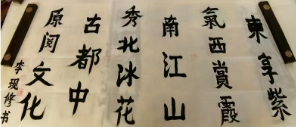 東享紫
氣西賞霞
南江山
秀北冰花
古都中
原阅文化
李修书